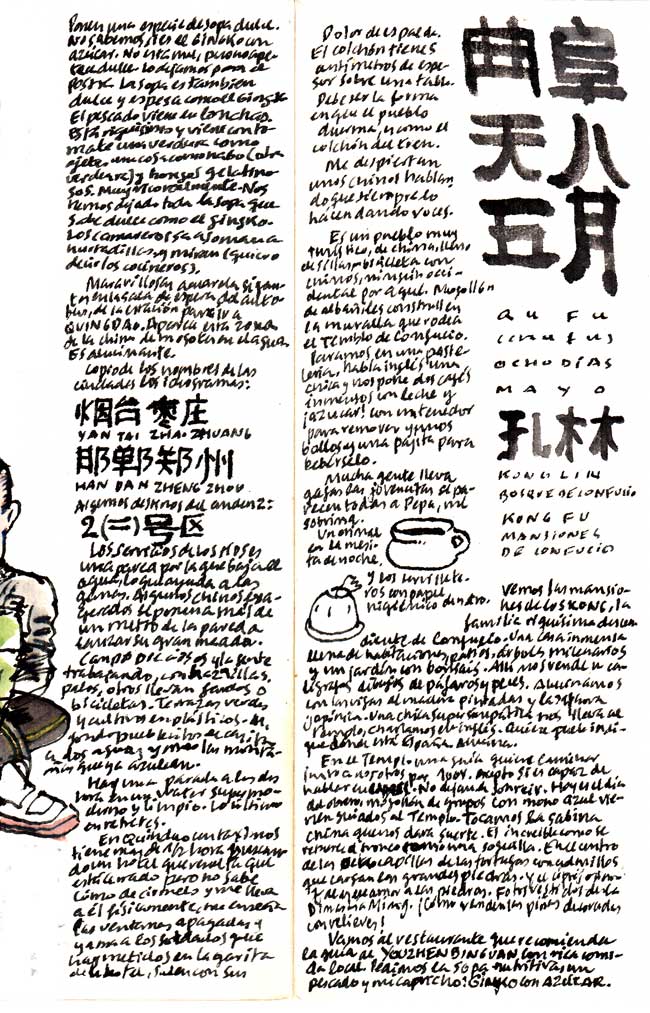 Ponen una especie de sopa dulce.
No sabemos si es el GINGKO con
azúcar. No está mal, pero no ape-
tece dulce. Lo dejamos para el
postre. La sopa es también
dulce y espesa como el Gingko
El pescado viene en lonchas.
Está riquísimo y viene con to-
mate una verdura como
ajete, una cosa como nabo (otra
verdura) y hongos gelatino-
sos. Muy rico realmente. Nos
hemos dejado toda la sopa que
sabe dulce como el gingko.
Los camareros se asoman a
hurtadillas, y miran (quiero
decir los cocineros).
Maravillosa acuarela gigan-
te en la sala de espera del auto-
bús, de la estación para ir a
QUINGDAO. Aparece esta zona
de la china de mosotes en el agua.
Es alucinante.
Copio de los nombres de las
ciudades los idiogramas:
烟台 枣庄
YAN TAI ZHAO ZHUANG
邯郸 郑州
HAN DAN ZHENG ZHOU
Algunos destinos del andén 2:
2(二)号区
Los servicios de los tíos es
una pared por la que baja el
agua, lo que ayuda a las
ganas. Algunos chinos exa-
gerados se ponen a más de
un metro de la pared a
lanzar su gran meada.
Campo por ahí y la gente
trabajando, con hazadillas,
palos, otros llevan fardos o
bicicletas. Terrazas verdes
y cultivos en plásticos. Al
fondo pueblecitos de casitas
a dos aguas y más las monta-
ñas que ya azulean.
Hay una parada a las dos
horas en un water super mo-
derno y limpio. Lo último
en retretes.
En Quindao cantaximos
tiene más de 1/2 hora buscan-
do un hotel que resulta que
está cerrado pero no sabe
cómo decírnoslo y me lleva
a él físicamente, me enseña
las ventanas apagadas y
llama a los soldados que
hay metidos en la garita
de la hotel, salen con sus
Dolor de espalda.
El colchón tiene 5
centímetros de espe-
sor sobre una tabla.
Debe ser la forma
en que el pueblo
duerma, y como el
colchón del tren.
Me despiertan
unos chinos hablan-
do que siempre lo
hacen dando voces.
Es un pueblo muy
turístico, de china, lleno
de sillas-bicicleta con
chinos, ningún occi-
dental por aquí. Mogollón
de albañiles construyen
la muralla que rodea
el templo de Confucio.
Paramos en una paste-
lería, habla inglés una
chica y nos pone dos cafés
inmensos con leche y
¡azúcar! con un tenedor
para remover y unos
bollos y una pajita para
bebérselo.
Mucha gente lleva
gafas las jovencitas se pa-
recen todas a Pepa, mi
sobrina.
Un orinal
en la mesi-
ta de noche,
y los servillete-
ros con papel
higiénico dentro.
曲阜
天八
五月
QU FU
(CHUFUS
OCHO DÍAS
MAYO
孔林林
KONG LIN
BOSQUE DE CONFUCIO
KONG FU
MANSIONES
DE CONFUCIO
Vemos las mansio-
nes de los KONG, la
familia riquísima descen-
diente de Confucio. Una casa inmensa
llena de habitaciones, patios, árboles milenarios
y un jardín con bonsáis. Allí nos vende un ca-
lígrafo dibujos de pájaros y peces. Alucinamos
con las vigas de madera pintadas y la
japónica. Una chica super simpática nos lleva al
templo, charlamos en inglés. Quiere que le indi-
que dónde está España. Alucina.
En el Templo una guía quiere caminar
junto a nosotros por 100Y. Acepto si es capaz de
hablar en español. No deja de sonreír. Hoy es el día
del obrero, mogollón de grupos con mono azul vie-
nen guiados al Templo. Tocamos la sabina
china que nos dará suerte. El increíble como se
retuerce el tronco como una soga. En el centro
de las capillas de las tortugas con colmillos
que cargan las grandes piedras. Y el
y al amor a las piedras. Fotos vestidos de la
Dinastía Ming. ¡Cómo venden las piñas decoradas
con relieves!
Vamos al restaurante que recomienda
la guía de YOUZHENBINGUAN, con rica comi-
da local. Pedimos la sopa nutritiva, un
pescado y mi capricho: Gingko con AZÚCAR.